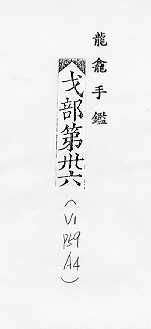 龍龕手鑑
戈部第卅六
(V1
P59
A4)